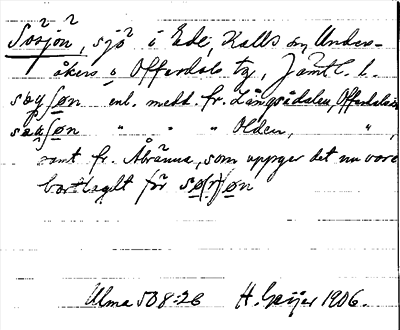 Sösjön, sjö i Ede, Kalls sn, Under-
åkers o Offerdals tg, Jämtl. l.
enl. medd. fr. Långsådalen, Offerdals sn
" " " Olden, ",
samt fr. Åbränna, som uppger det nu vara
bortlagdt för
Ulma 508:26 H. Geijer 1906.